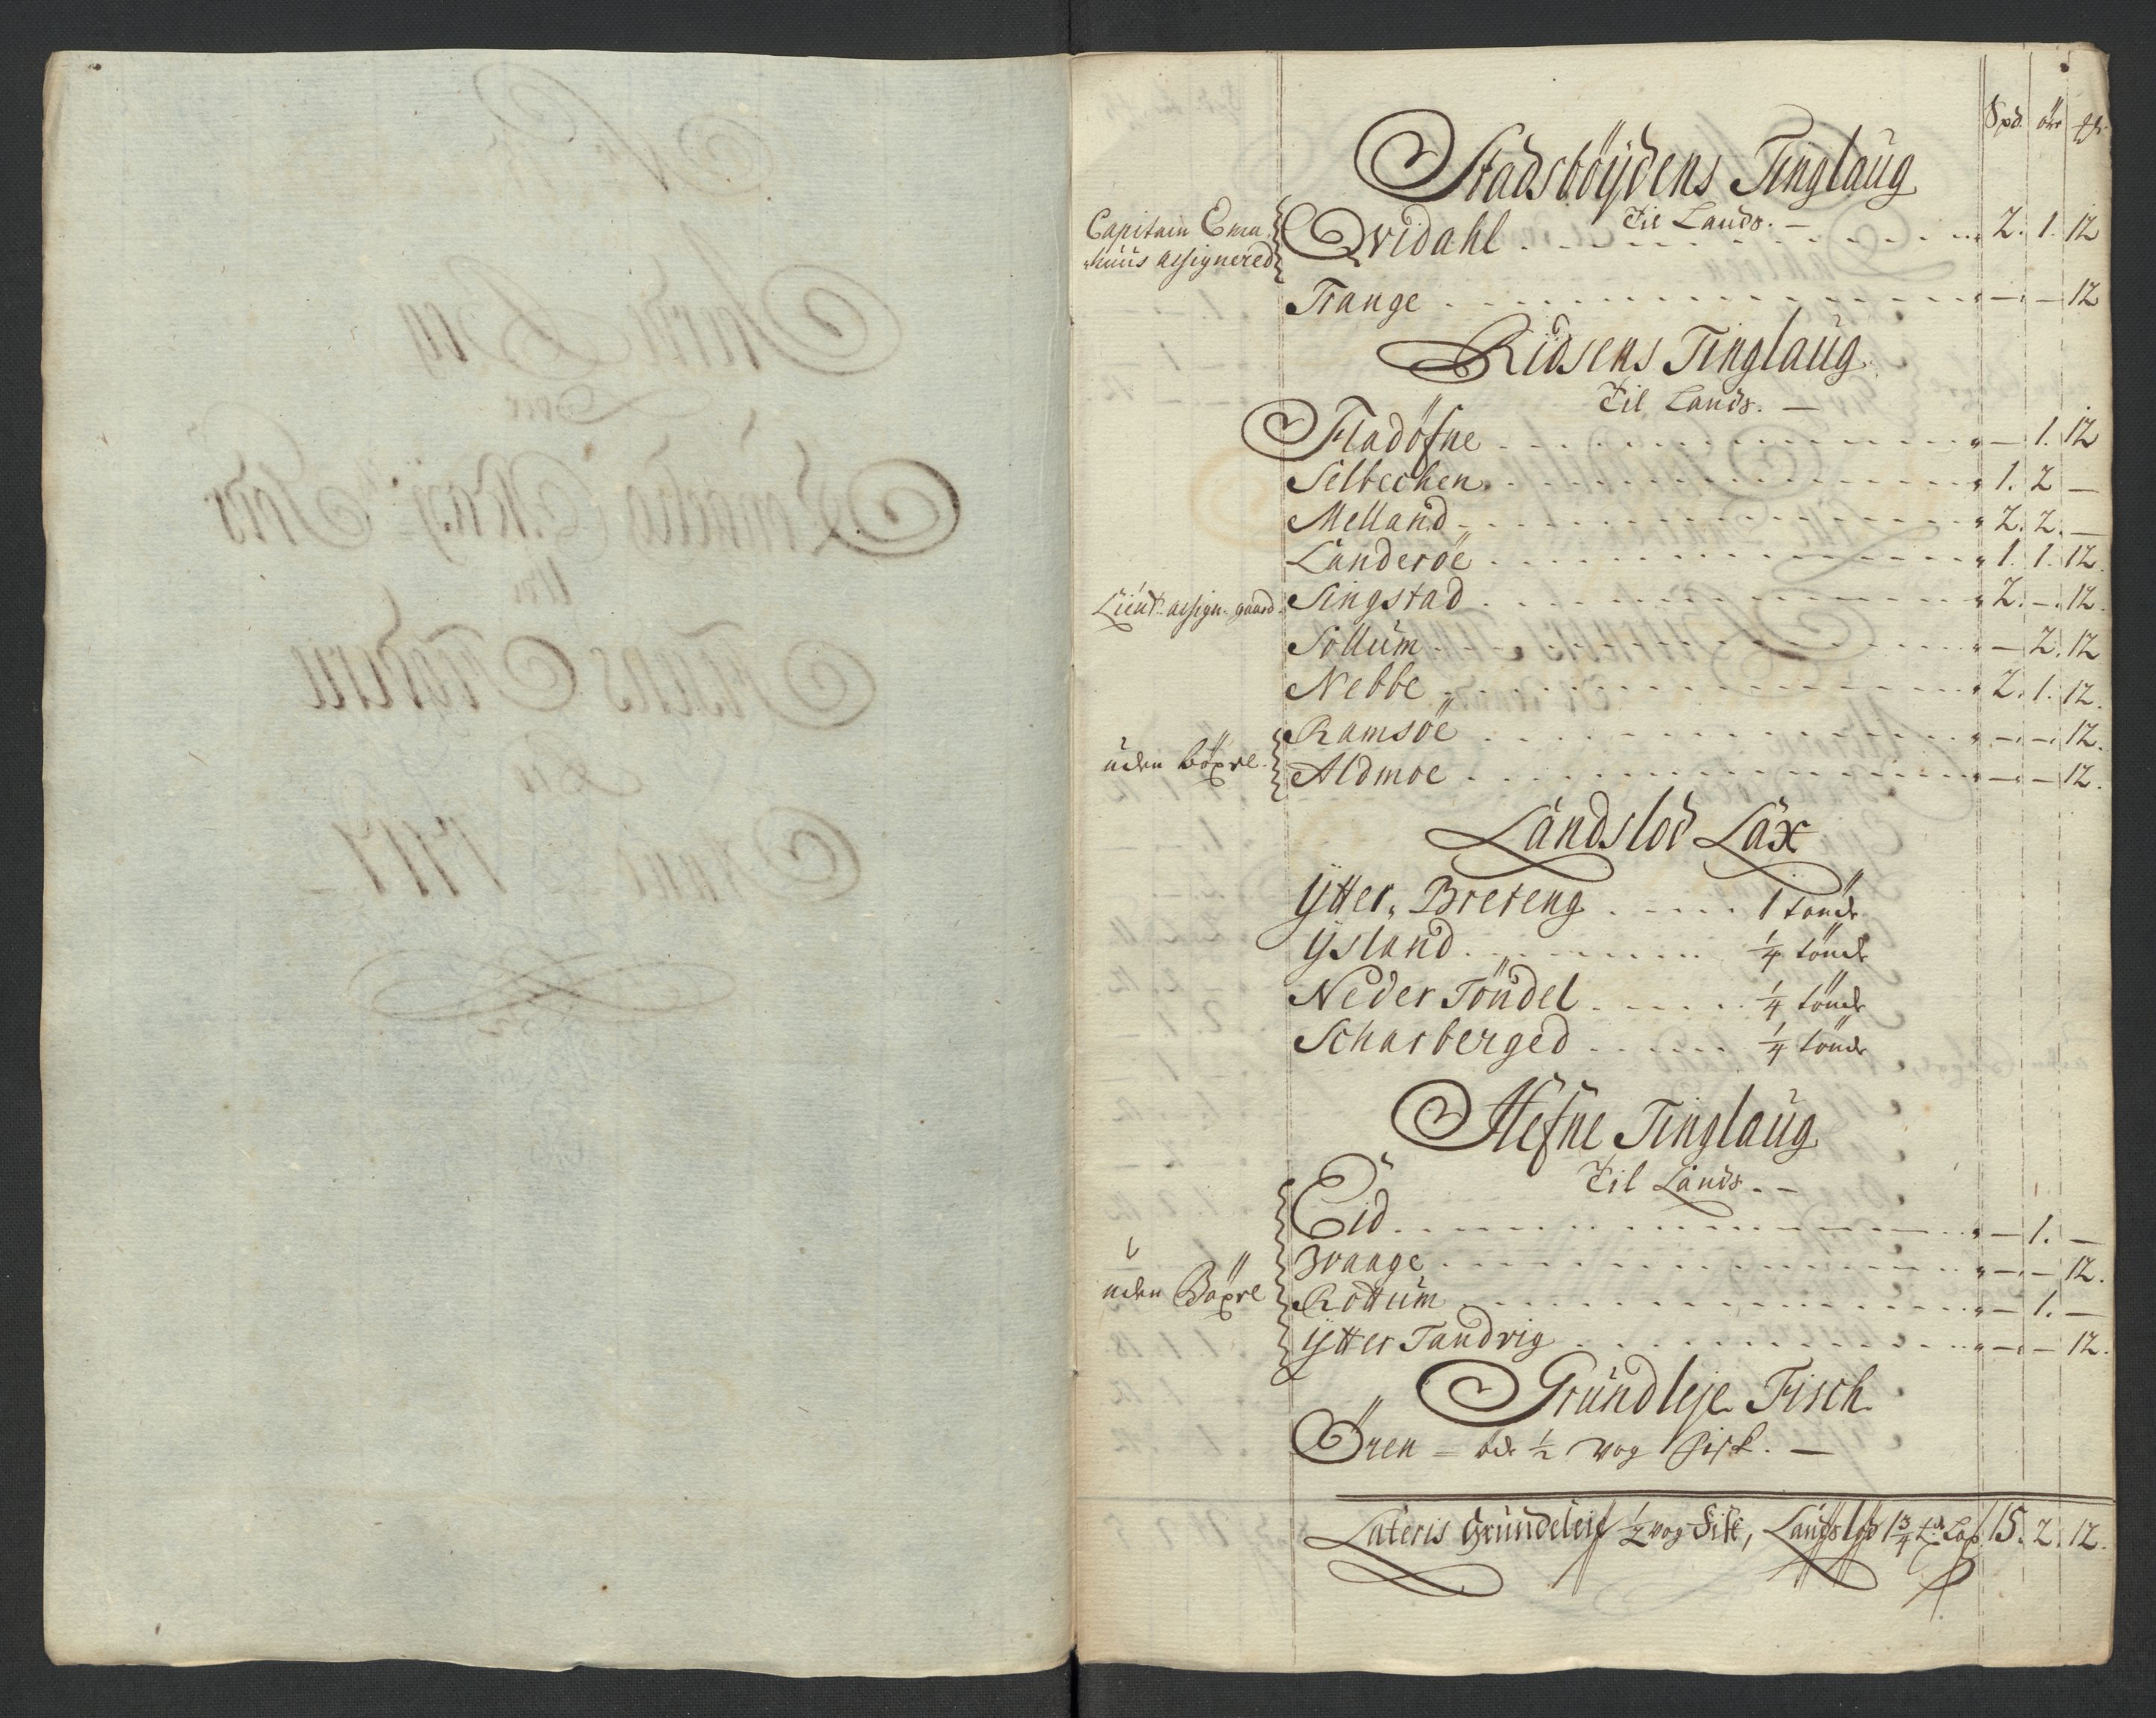 Spd. öre
Stadsböÿdens Tinglaug
Til Lands. —
Capitain Emahuus assignered
Qvidahl . . . 2. 1. 12
Trange . . . — — 12
Ridsens Tinglaug
Til Lands. —
Fladöfne . . . — 1. 12
Selbechen . . . 1. 2 —
Melland . . . 2. 2. —
Landeröe . . . 1. 1. 12.
Lieut. assign. gaard. Singstad . . . 2. — 12.
Sollum . . . — 2. 12
Nebbe . . . 2. 1. 12.
Ramsöe . . . — — 12.
uden böxel. Aldmoe . . . — — 12.
Landslod Lax
Ÿtter Breteng . . . 1 tönde
Ÿsland . . . 1/4 tönde
Neder Töndel . . . 1/4 tönde
Scharberged . . . 1/4 tönde
Hefne Tinglaug
Til Lands. —
Eid . . . — 1. —
Vraage . . . — — 12.
uden Böxel Rottum . . . — 1. —
Ÿtter Tandvig . . . — — 12.
Grundleje Fisch
Ören — 1/2 vog fisk. —
Lateris Grundeleie 1/2 vog Fisk, Landslod 1 3/4 td. Lax 15. 2. 12.